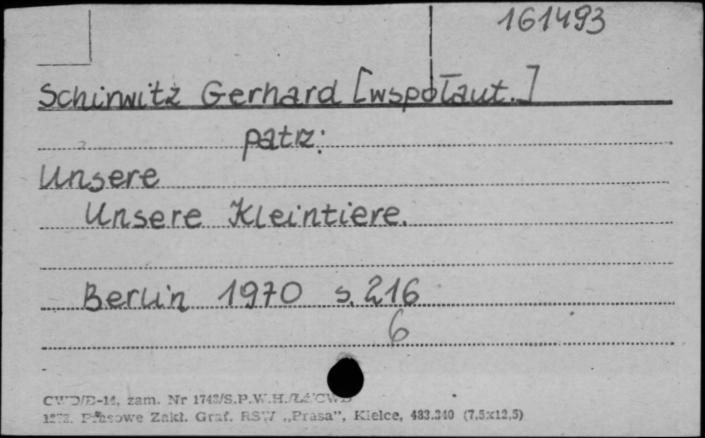 161493
Schirwitz Gerhard [współaut.]
patrz:
Unsere
Unsere Kleintiere.
Berlin 1970 s. 216
6
zam. Nr 1743/S.P.W.H.
Zakł. Graf. RSW „Prasa”, Kielce, 483.340 (7,5x12,5)